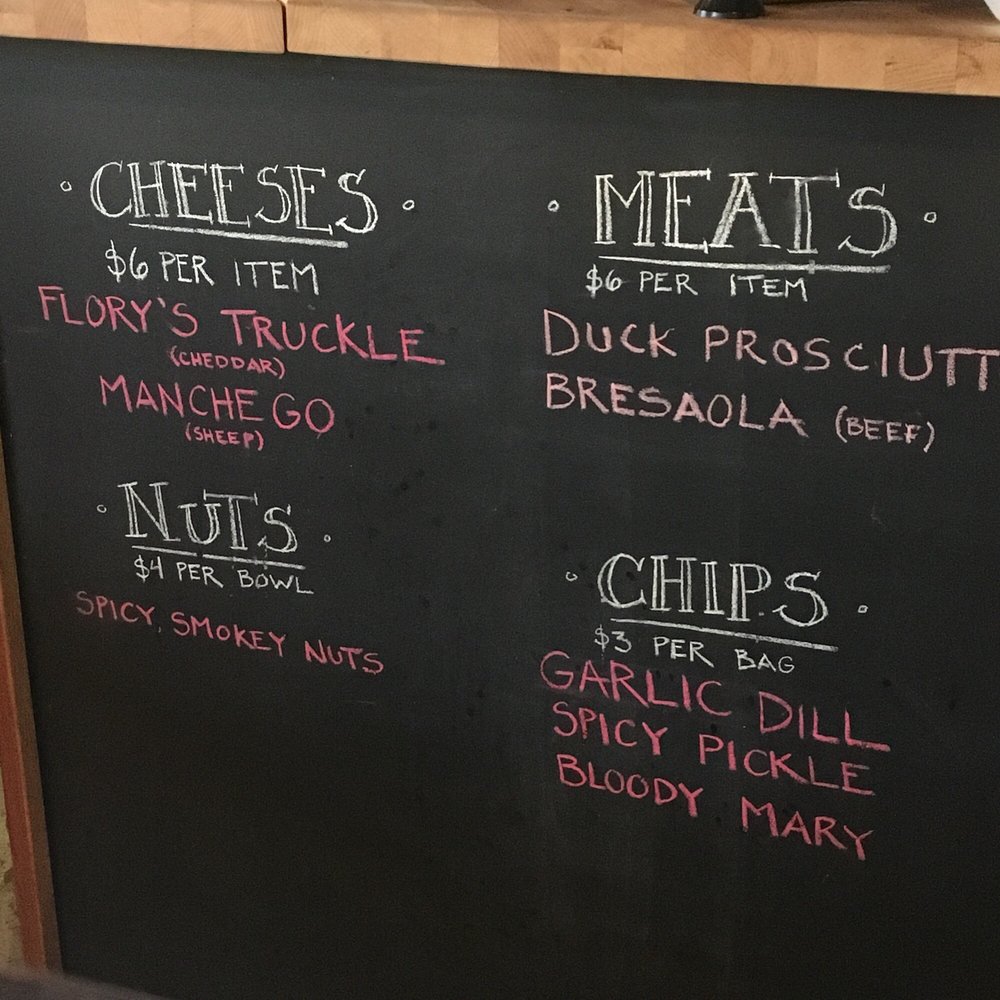 CHEESES
$6 PER ITEM
FLORY'S TRUCKLE
(CHEDDAR)
MANCHEGO
(SHEEP)
NUTS
$4 PER BOWL
SPICY, SMOKEY NUTS
MEATS
$6 PER ITEM
DUCK PROSCIUTT
BRESAOLA (BEEF)
CHIPS
$3 PER BAG
GARLIC DILL
SPICY PICKLE
BLOODY MARY